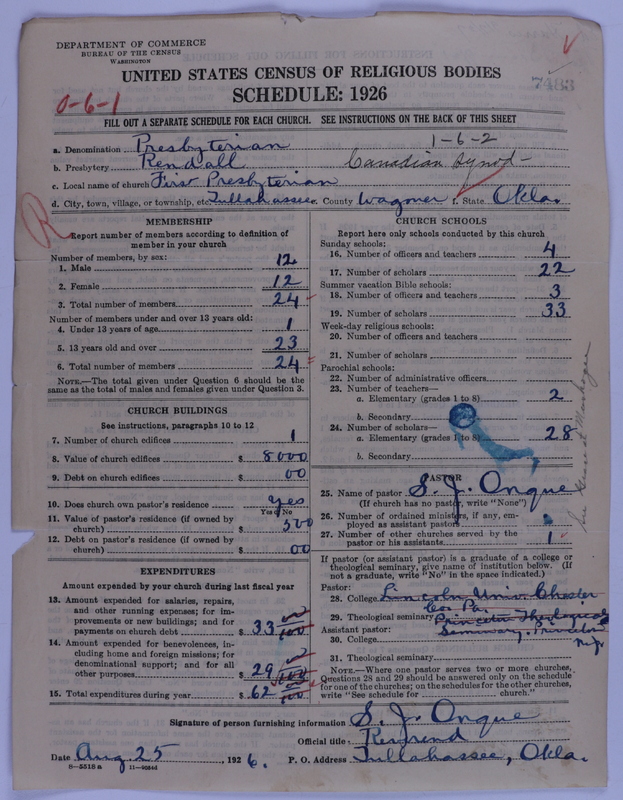 DEPARTMENT OF COMMERCE
BUREAU OF THE CENSUS
WASHINGTON
UNITED STATES CENSUS OF RELIGIOUS BODIES
7483
SCHEDULE: 1926
0-6-1
FILL OUT A SEPARATE SCHEDULE FOR EACH CHURCH. SEE INSTRUCTIONS ON THE BACK OF THIS SHEET
1-6-2
a. Denomination Presbyterian
b. Presbytery Rendall Canadian Synod-
c. Local name of church First Presbyterian
d. City, town, village, or township, etc Tullahassee e. County Wagoner f. State Okla.
R
MEMBERSHIP
Report number of members according to definition of member in your church
Number of members, by sex:
1. Male 12
2. Female 12
3. Total number of members 24
Number of members under and over 13 years old:
4. Under 13 years of age 1
5. 13 years old and over 23
6. Total number of members 24
NOTE.—The total given under Question 6 should be the same as the total of males and females given under Question 3.
CHURCH BUILDINGS
See instructions, paragraphs 10 to 12
7. Number of church edifices 1
8. Value of church edifices $ 8000
9. Debt on church edifices $ 00
10. Does church own pastor's residence yes
Yes or No
11. Value of pastor's residence (if owned by church) $ 500
12. Debt on pastor's residence (if owned by church) $ 00
EXPENDITURES
Amount expended by your church during last fiscal year
13. Amount expended for salaries, repairs, and other running expenses; for improvements or new buildings; and for payments on church debt $ 33 00/100
14. Amount expended for benevolences, including home and foreign missions; for denominational support; and for all other purposes $ 29 00/100
15. Total expenditures during year $ 62 00/100
CHURCH SCHOOLS
Report here only schools conducted by this church
Sunday schools:
16. Number of officers and teachers 4
17. Number of scholars 22
Summer vacation Bible schools:
18. Number of officers and teachers 3
19. Number of scholars 33
Week-day religious schools:
20. Number of officers and teachers
21. Number of scholars
Parochial schools:
22. Number of administrative officers
23. Number of teachers—
a. Elementary (grades 1 to 8) 2
b. Secondary
24. Number of scholars—
a. Elementary (grades 1 to 8) 28
b. Secondary
PASTOR
25. Name of pastor S. J. Onque
(If church has no pastor, write "None")
26. Number of ordained ministers, if any, employed as assistant pastor
27. Number of other churches served by the pastor or his assistants 1
If pastor (or assistant pastor) is a graduate of a college or theological seminary, give name of institution below. (If not a graduate, write "No" in the space indicated.)
Pastor:
28. College Lincoln Univ. Chester Co. Pa.
29. Theological seminary Princeton Theological Seminary, Princeton N.J.
Assistant pastor:
30. College
31. Theological seminary
NOTE.—Where one pastor serves two or more churches, Questions 28 and 29 should be answered only on the schedule for one of the churches; on the schedules for the other churches, write "See schedule for church."
Signature of person furnishing information S. J. Onque
Official title Reverend
Date Aug. 25 1926. P. O. Address Tullahassee, Okla.
8—5518 a